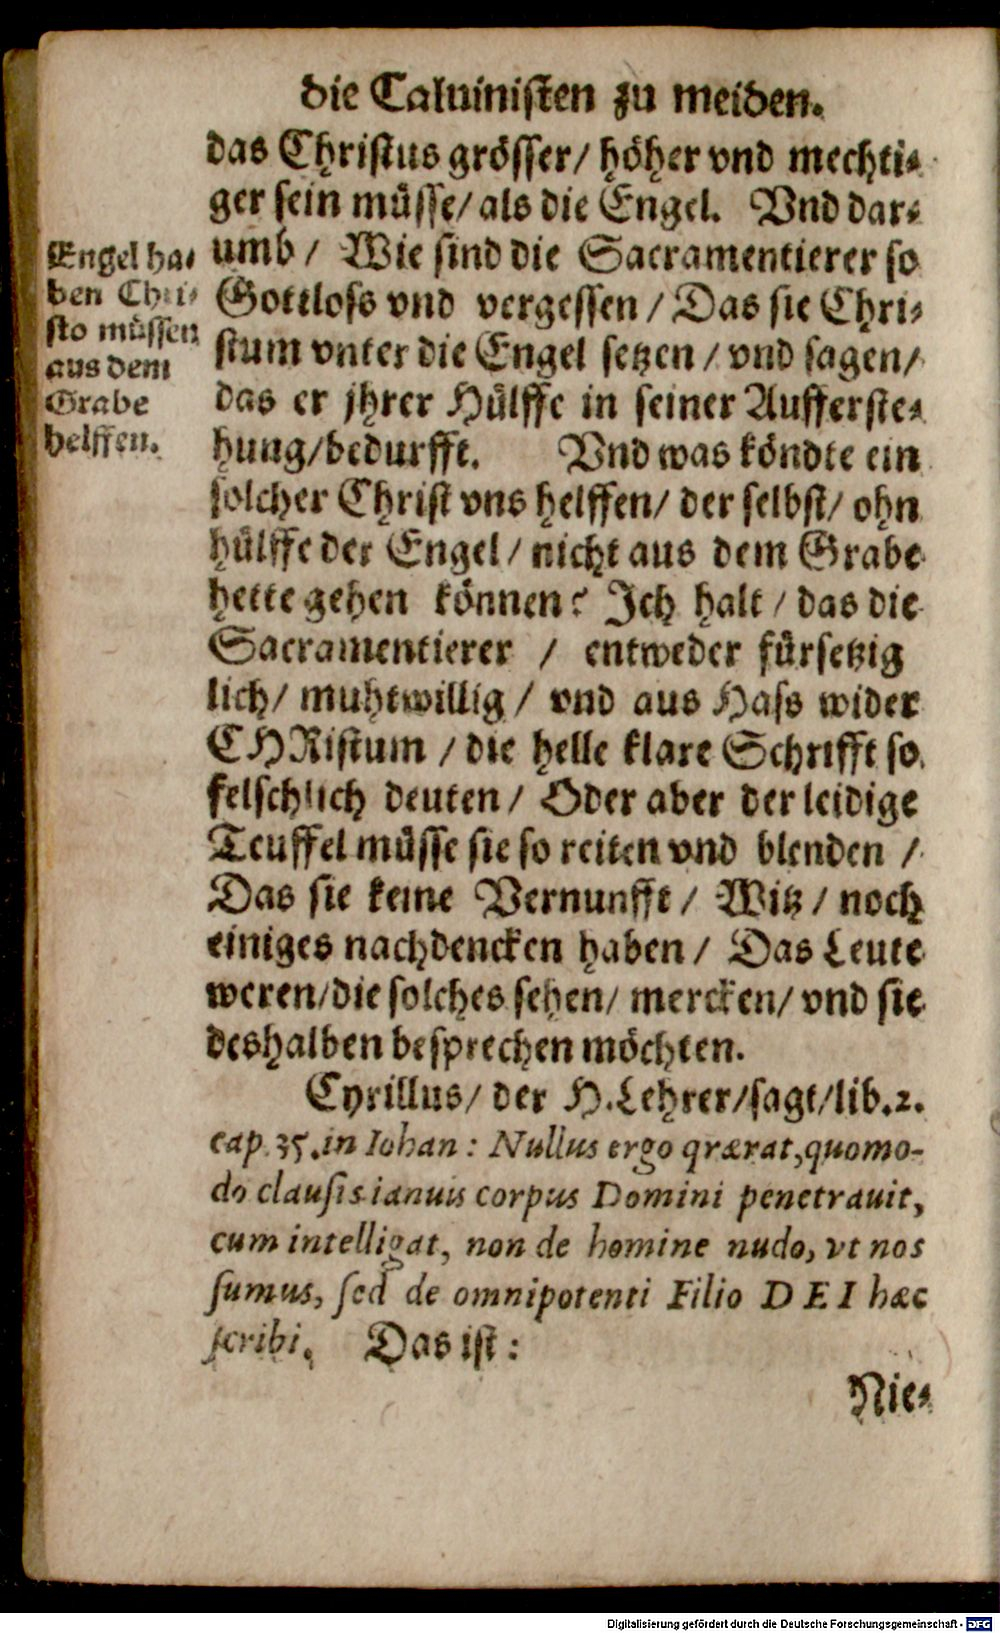 die Caluinisten zu meiden.
das Christus grösser/ höher vnd mechti⸗
ger sein müsse/ als die Engel. Vnd dar⸗
umb / Wie sind die Sacramentierer so
Gottloss vnd vergessen / Das sie Chri⸗
stum vnter die Engel setzen / vnd sagen/
das er jhrer Hülffe in seiner Aufferste⸗
hung/bedurfft. Vnd was köndte ein
solcher Christ vns helffen/ der selbst/ ohn
hülffe der Engel / nicht aus dem Grabe
hette gehen können? Jch halt / das die
Sacramentierer / entweder fürsetzig
lich/ muhtwillig / vnd aus Hass wider
CHRistum / die helle klare Schrifft so
felschlich deuten / Oder aber der leidige
Teuffel müsse sie so reiten vnd blenden /
Das sie keine Vernunfft / Witz / noch
einiges nachdencken haben / Das Leute
weren/die solches sehen/ mercken/ vnd sie
deshalben besprechen möchten.
Cyrillus/ der H. Lehrer/sagt/lib.2.
cap. 35. in Iohan: Nullus ergo qrærat, quomo-
do clausis ianuis corpus Domini penetrauit,
cum intelligat, non de homine nudo, vt nos
sumus, sed de omnipotenti Filio DEI hæc
scribi. Das ist:
Nie⸗
Engel ha⸗
ben Chri⸗
sto müssen
aus dem
Grabe
helffen.
Digitalisierung gefördert durch die Deutsche Forschungsgemeinschaft - DFG